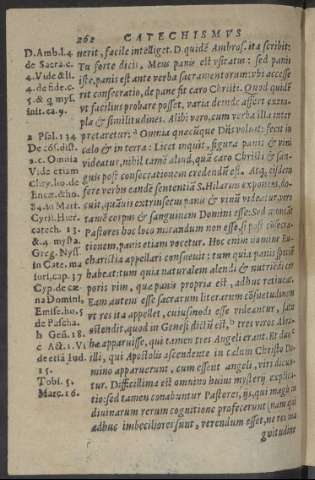 262 CATECHISMVS
D. Amb. l. 4
de Sacra. c.
4. Vide & li.
4. de fide. c.
5. & q myst.
init. ca. 9.
a Psal. 134
De cōs. dist.
2. c. Omnia
Vide etiam
Chry. ho. de
Encæ. & ho.
84. in Matt.
Cyril. Hier.
catech. 13.
& 4. mysta.
Greg. Nyss.
in Cate. ma
iori, cap. 37
Cyp. de cœ
na Domini,
Emiss. ho. 5
de Pascha.
b Gen. 18.
c Act. 1. Vi
de etiā Iud.
15.
Tobi. 5.
Marc. 16.
nerit, facile intelliget. D. quidē Ambros. ita scribit:
Tu forte dicis, Meus panis est vsitatus: sed panis
iste, panis est ante verba sacramentorum: vbi accesse
rit consecratio, de pane fit caro Christi. Quod quidē
vt facilius probare posset, varia deinde affert exem-
pla & similitudines. Alibi vero, cum verba illa inter
pretaretur: a Omnia quæcūque Dñs voluit, fecit in
cælo & in terra: Licet inquit, figura panis & vini
videatur, nihil tamē aliud, quā caro Christi & san-
guis post consecrationem credendū est. Atq; eisdem
fere verbis eandē sententiā S. Hilarius exponens, do-
cuit, quāuis extrinsecus panis & vinū videatur, vere
tamē corpus & sanguinem Domini esse: Sed moneāt
Pastores hoc loco mirandum non esse, si post cōsecra-
tionem, panis etiam vocetur. Hoc enim nomine Eu-
charistia appellari consueuit: tum quia panis speciē
habeat: tum quia naturalem alendi & nutriēdi cor
poris vim, quæ panis propria est, adhuc retineat.
Eam autem esse sacrarum literarum cōsuetudinem
vt res ita appellet, cuiusmodi esse videantur, satis
ostendit, quod in Genesi dictū est, b tres viros Abra-
hæ apparuisse, qui tamen tres Angeli erant. Et duo c
illi, qui Apostolis ascendente in cælum Christo Do-
mino apparuerunt, cum essent angeli, viri dicun-
tur. Difficillima est omnino huius mysterij explica-
tio: sed tamen conabuntur Pastores, ijs, qui magis in
diuinarum rerum cognitione profecerunt (nam qui
adhuc imbecilliores sunt, verendum esset, ne rei ma
gnitudine